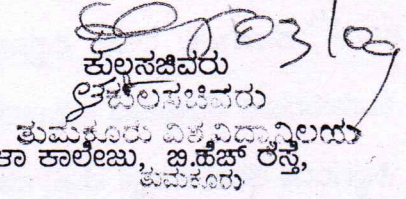 ಕುಲಸಚಿವರು
ಕುಲಸಚಿವರು
ತುಮಕೂರು ವಿಶ್ವವಿದ್ಯಾನಿಲಯ
ಕಾಲೇಜು, ಬಿ.ಹೆಚ್ ರಸ್ತೆ,
ತುಮಕೂರು